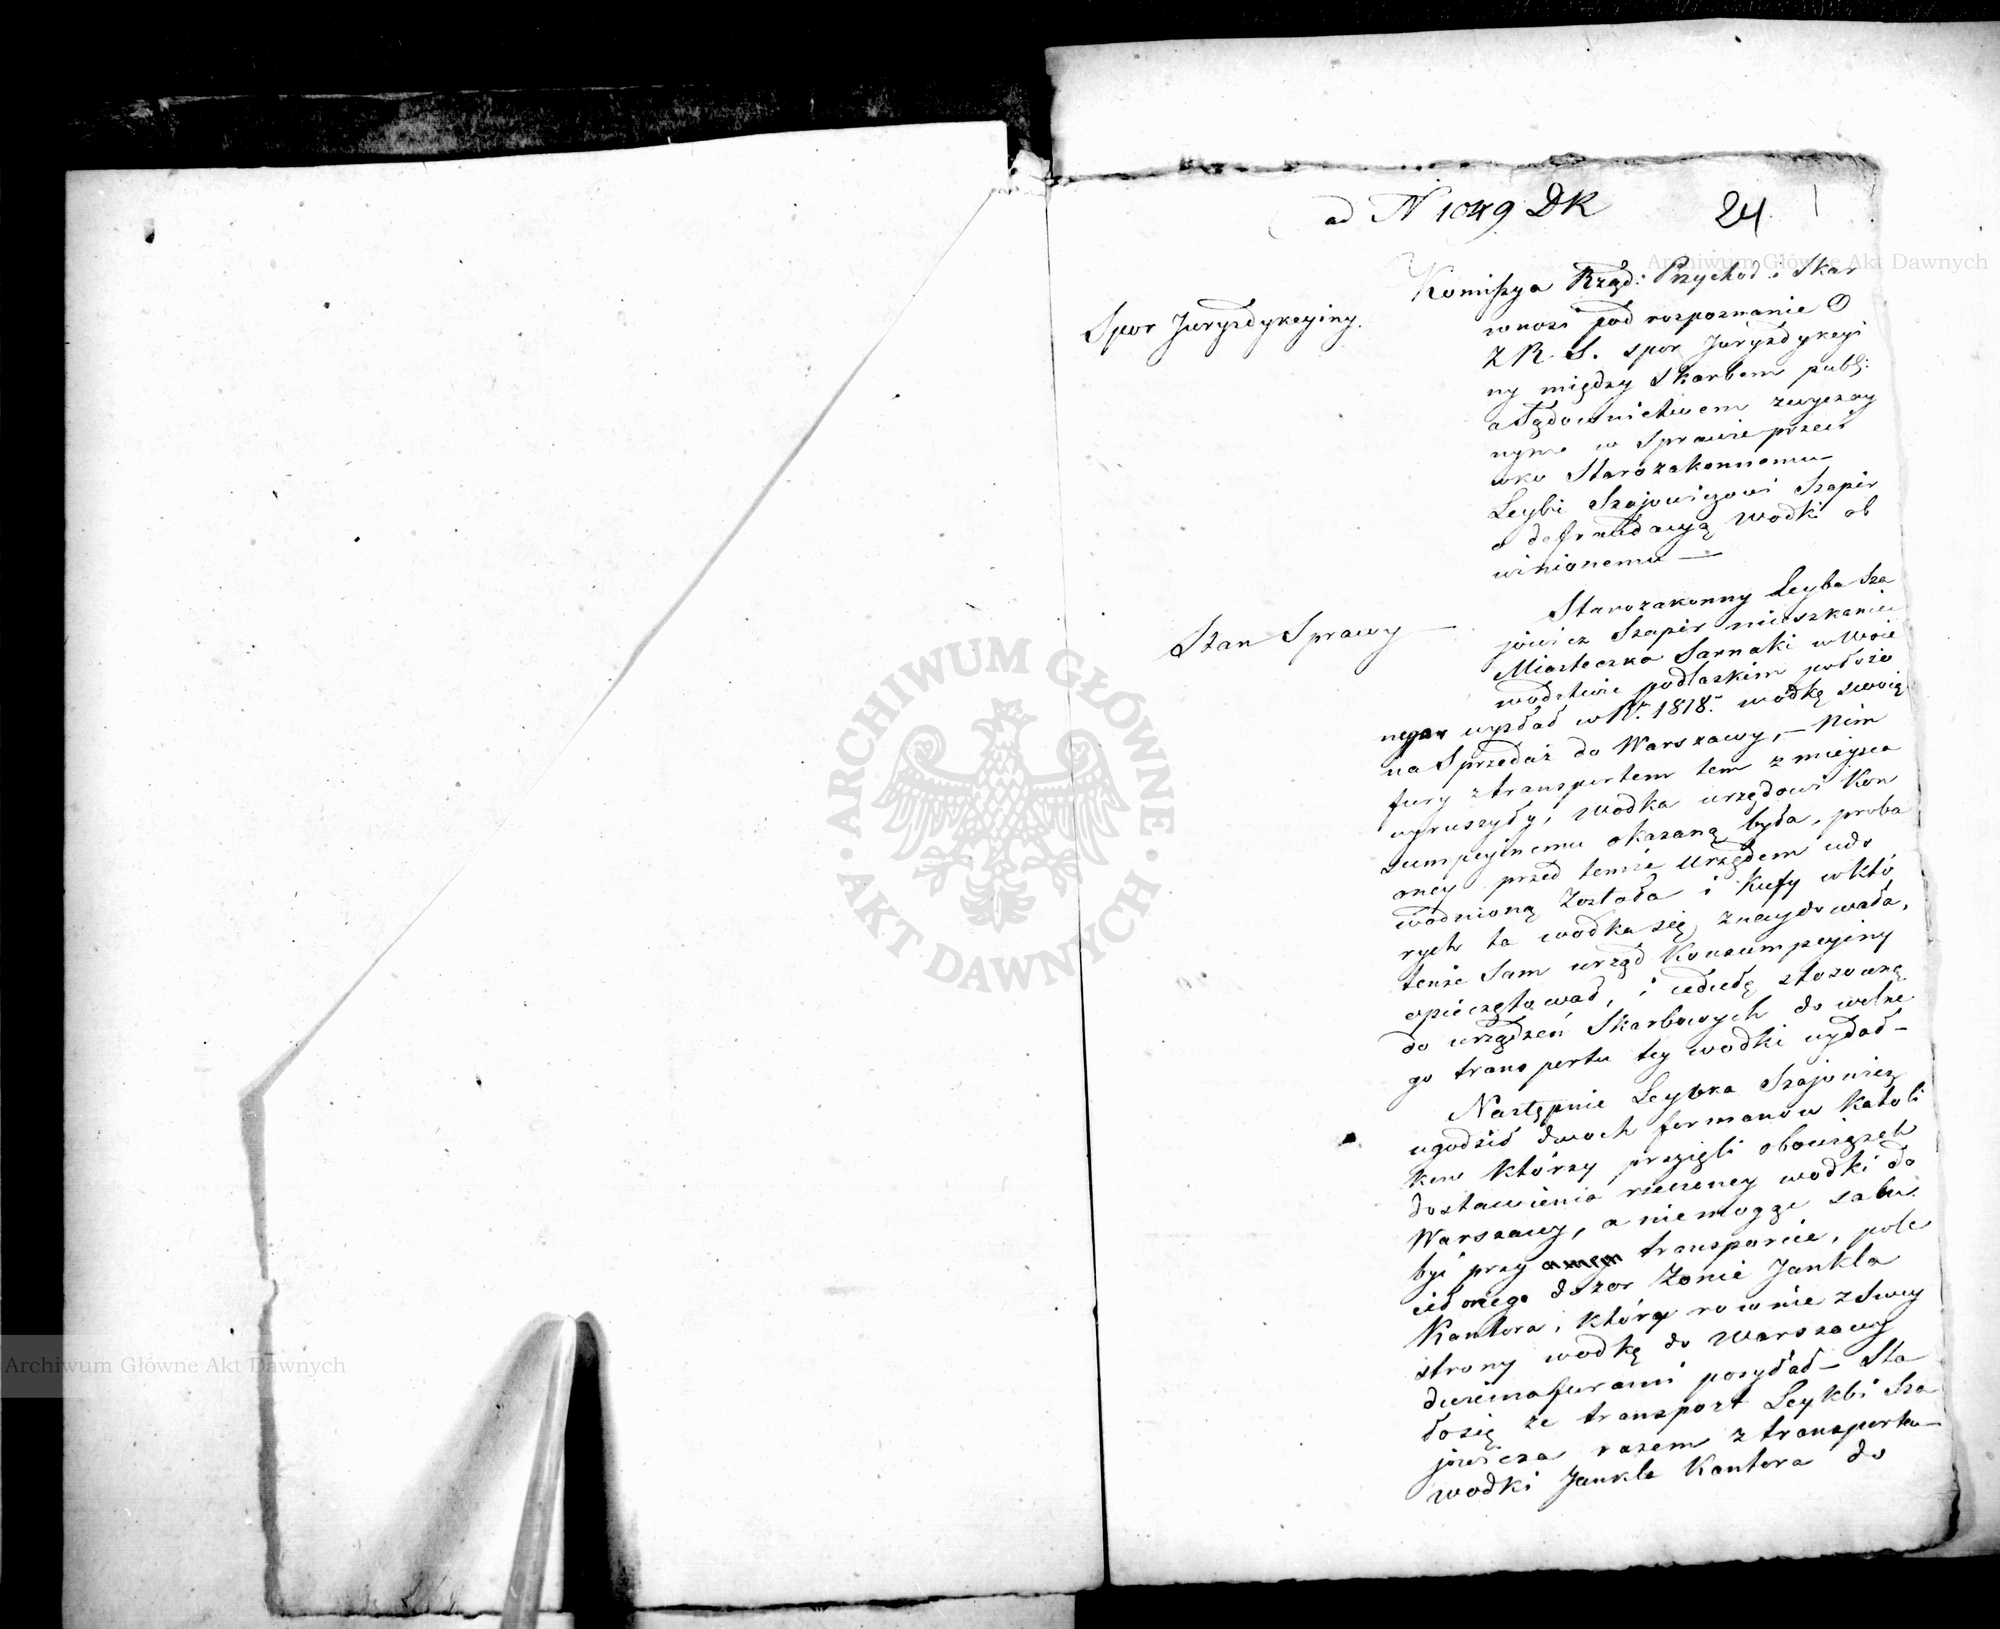 ad N 1049 DK
24
Komissya Rząd: Przychod i Skar
Spor Juryzdykcyiny.
wnosi pod rozpoznanie O
Z R. S. spor Juryzdykcyi
ny między Skarbem publ:
a Sądownictwem zwyczay
nym w Sprawie przeci
wko Starozakonnemu
Leybi Szajowiczowi Szapir
o defraudacyą wodki ob
winionemu —
Stan Sprawy —
Starozakonny Leyba Sza
jowicz Szapir mieszkaniec
Miasteczka Sarnaki w Woie
wodztwie podlaskim położo
nego wysłał w R. 1818. wodkę swoią
na Sprzedaż do Warszawy, — Nim
fury z transportem tem z mieysca
wyruszyły, wodka urzędowi Kon
sumpcyinemu okazaną była, proba
oney przed temże Urzędem udo
wodnioną została i kufy w któ
rych ta wodka się znaydowała,
tenże Sam urząd Konsumpcyiny
opieczętował, i cedułę stosowną
do urządzeń Skarbowych do wolne
go transportu tey wodki wydał —
Następnie Leybka Szajowicz
ugodził dwoch formanow Katoli
kow którzy przyięli obowiązek
dostawienia rzeczoney wodki do
Warszawy, a niemogąc sabu
być przy onem transporcie, pole
cił onego dozor Zonie Jankla
Kantora, który rownie z Swey
strony wodkę do Warszawy
dwiema furami posyłał — Sta
ło się że transport Leykbi Sza
jowicza razem z transportem
wodki Jankla Kantora do
Archiwum Główne Akt Dawnych
ARCHIWUM GŁÓWNE · AKT DAWNYCH ·
Archiwum Główne Akt Dawnych